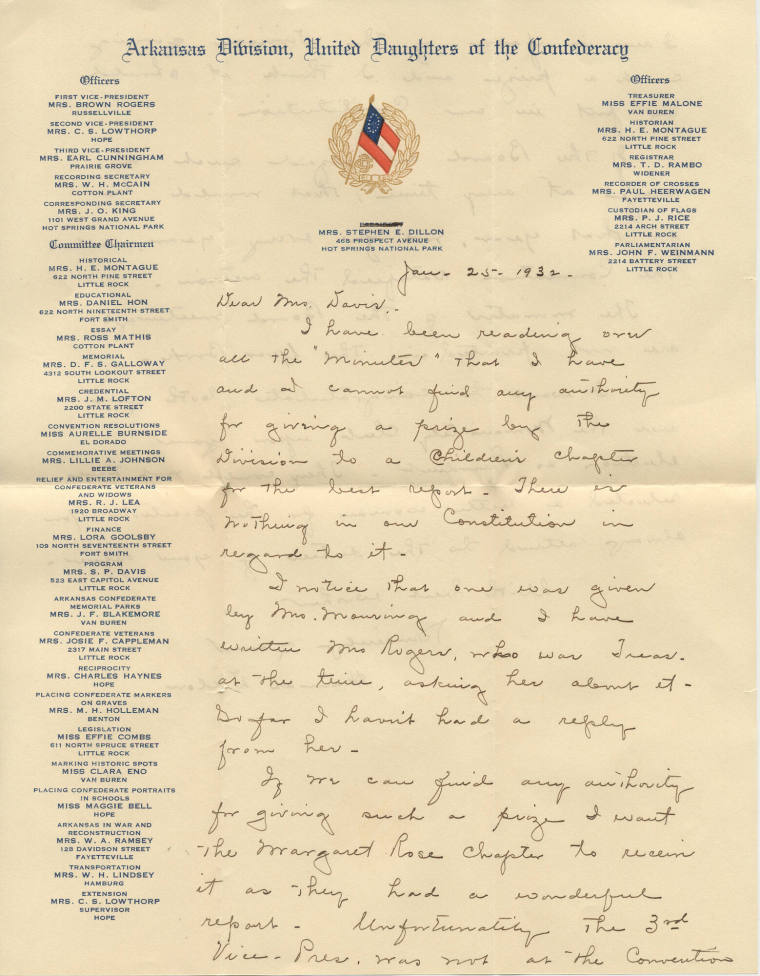 Arkansas Division, United Daughters of the Confederacy
Officers
FIRST VICE-PRESIDENT
MRS. BROWN ROGERS
RUSSELLVILLE
SECOND VICE-PRESIDENT
MRS. C. S. LOWTHORP
HOPE
THIRD VICE-PRESIDENT
MRS. EARL CUNNINGHAM
PRAIRIE GROVE
RECORDING SECRETARY
MRS. W. H. McCAIN
COTTON PLANT
CORRESPONDING SECRETARY
MRS. J. O. KING
1101 WEST GRAND AVENUE
HOT SPRINGS NATIONAL PARK
Committee Chairmen
HISTORICAL
MRS. H. E. MONTAGUE
622 NORTH PINE STREET
LITTLE ROCK
EDUCATIONAL
MRS. DANIEL HON
622 NORTH NINETEENTH STREET
FORT SMITH
ESSAY
MRS. ROSS MATHIS
COTTON PLANT
MEMORIAL
MRS. D. F. S. GALLOWAY
4312 SOUTH LOOKOUT STREET
LITTLE ROCK
CREDENTIAL
MRS. J. M. LOFTON
2200 STATE STREET
LITTLE ROCK
CONVENTION RESOLUTIONS
MISS AURELLE BURNSIDE
EL DORADO
COMMEMORATIVE MEETINGS
MRS. LILLIE A. JOHNSON
BEEBE
RELIEF AND ENTERTAINMENT FOR
CONFEDERATE VETERANS
AND WIDOWS
MRS. R. J. LEA
1920 BROADWAY
LITTLE ROCK
FINANCE
MRS. LORA GOOLSBY
109 NORTH SEVENTEENTH STREET
FORT SMITH
PROGRAM
MRS. S. P. DAVIS
523 EAST CAPITOL AVENUE
LITTLE ROCK
ARKANSAS CONFEDERATE
MEMORIAL PARKS
MRS. J. F. BLAKEMORE
VAN BUREN
CONFEDERATE VETERANS
MRS. JOSIE F. CAPPLEMAN
2317 MAIN STREET
LITTLE ROCK
RECIPROCITY
MRS. CHARLES HAYNES
HOPE
PLACING CONFEDERATE MARKERS
ON GRAVES
MRS. M. H. HOLLEMAN
BENTON
LEGISLATION
MISS EFFIE COMBS
611 NORTH SPRUCE STREET
LITTLE ROCK
MARKING HISTORIC SPOTS
MISS CLARA ENO
VAN BUREN
PLACING CONFEDERATE PORTRAITS
IN SCHOOLS
MISS MAGGIE BELL
HOPE
ARKANSAS IN WAR AND
RECONSTRUCTION
MRS. W. A. RAMSEY
128 DAVIDSON STREET
FAYETTEVILLE
TRANSPORTATION
MRS. W. H. LINDSEY
HAMBURG
EXTENSION
MRS. C. S. LOWTHORP
SUPERVISOR
HOPE
Officers
TREASURER
MISS EFFIE MALONE
VAN BUREN
HISTORIAN
MRS. H. E. MONTAGUE
622 NORTH PINE STREET
LITTLE ROCK
REGISTRAR
MRS. T. D. RAMBO
WIDENER
RECORDER OF CROSSES
MRS. PAUL HEERWAGEN
FAYETTEVILLE
CUSTODIAN OF FLAGS
MRS. P. J. RICE
2214 ARCH STREET
LITTLE ROCK
PARLIAMENTARIAN
MRS. JOHN F. WEINMANN
2214 BATTERY STREET
LITTLE ROCK
MRS. STEPHEN E. DILLON
465 PROSPECT AVENUE
HOT SPRINGS NATIONAL PARK
Jan - 25 - 1932 -
Dear Mrs. Davis, -
I have been reading over
all the "Minutes" that I have
and I cannot find any authority
for giving a prize by the
Division to a Children's Chapter
for the best report - There is
nothing in our Constitution in
regard to it -
I notice that one was given
by Mrs. and I have
written Mrs Rogers, who was Treas.
at the time, asking her about it -
So far I havn't had a reply
from her -
If we can find any authority
for giving such a prize I want
the Margaret Rose Chapter to receive
it as they had a wonderful
report - Unfortunatily the 3rd
Vice-Pres. was not at the Convention